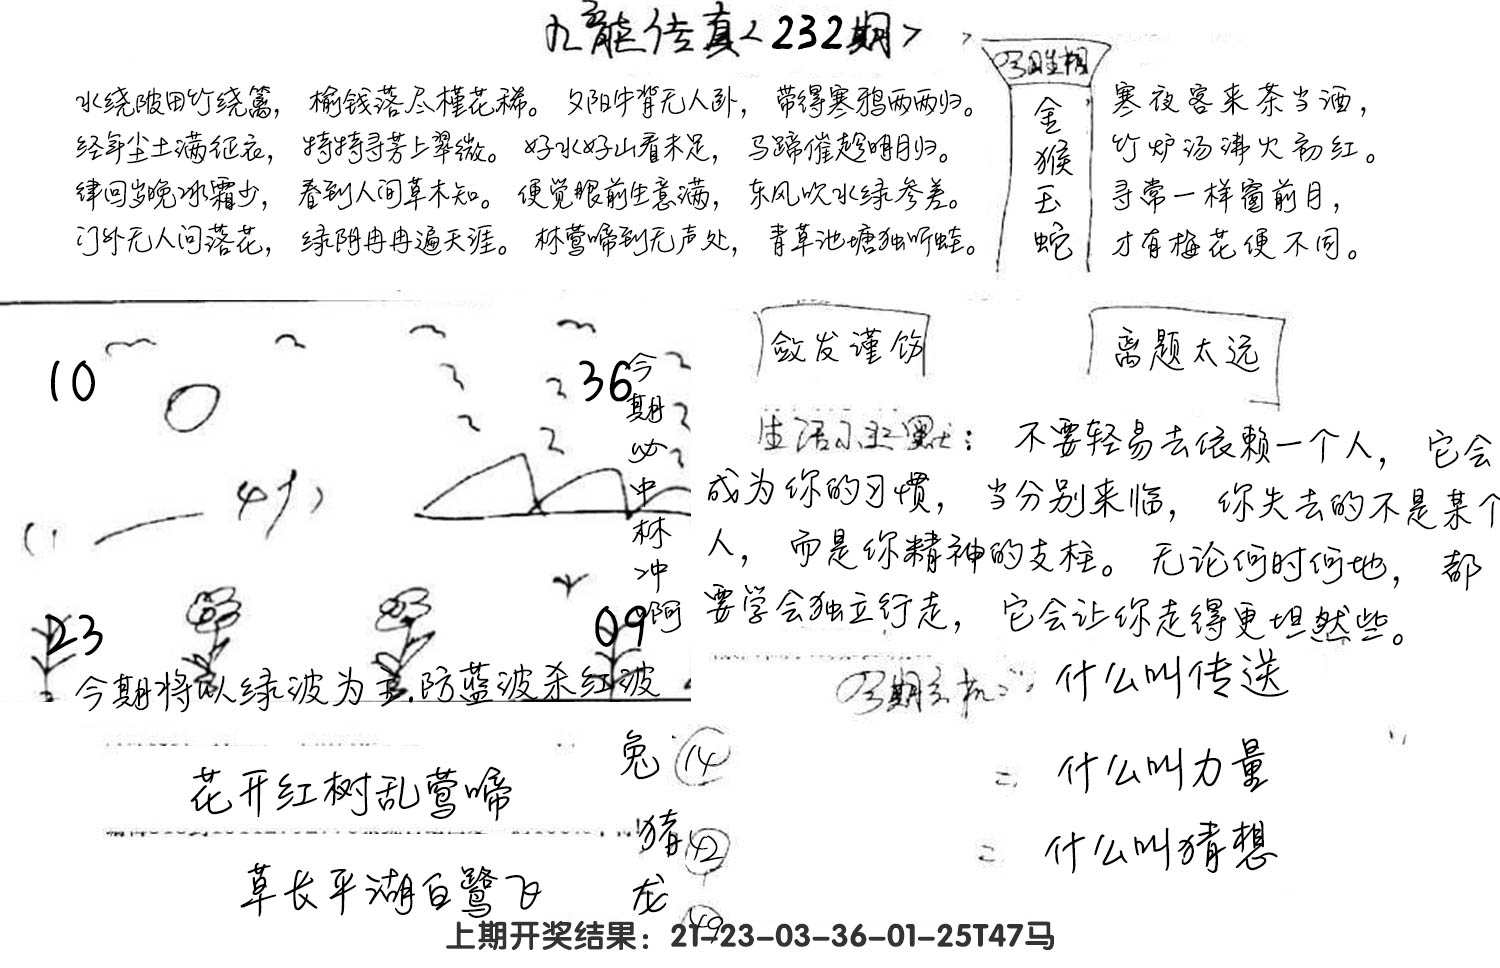 九龙传真<232期>
水绕陂田竹绕篱，榆钱落尽槿花稀。夕阳牛背无人卧，带得寒鸦两两归。
经年尘土满征衣，特特寻芳上翠微。好水好山看未足，马蹄催趁明月归。
律回岁晚冰霜少，春到人间草木知。便觉眼前生意满，东风吹水绿参差。
门外无人问落花，绿阴冉冉遍天涯。林莺啼到无声处，青草池塘独听蛙。
金
猴
玉
蛇
寒夜客来茶当酒，
竹炉汤沸火初红。
寻常一样窗前月，
才有梅花便不同。
10
36
23
09
今期必中林冲啊
今期将以绿波为主.防蓝波杀红波
敛发谨饬
离题太远
生活幽默：不要轻易去依赖一个人，它会
成为你的习惯，当分别来临，你失去的不是某个
人，而是你精神的支柱。无论何时何地，都
要学会独立行走，它会让你走得更坦然些。
什么叫传送
什么叫力量
什么叫猜想
花开红树乱莺啼
草长平湖白鹭飞
兔 14
猪 42
龙 49
上期开奖结果：21-23-03-36-01-25T47马